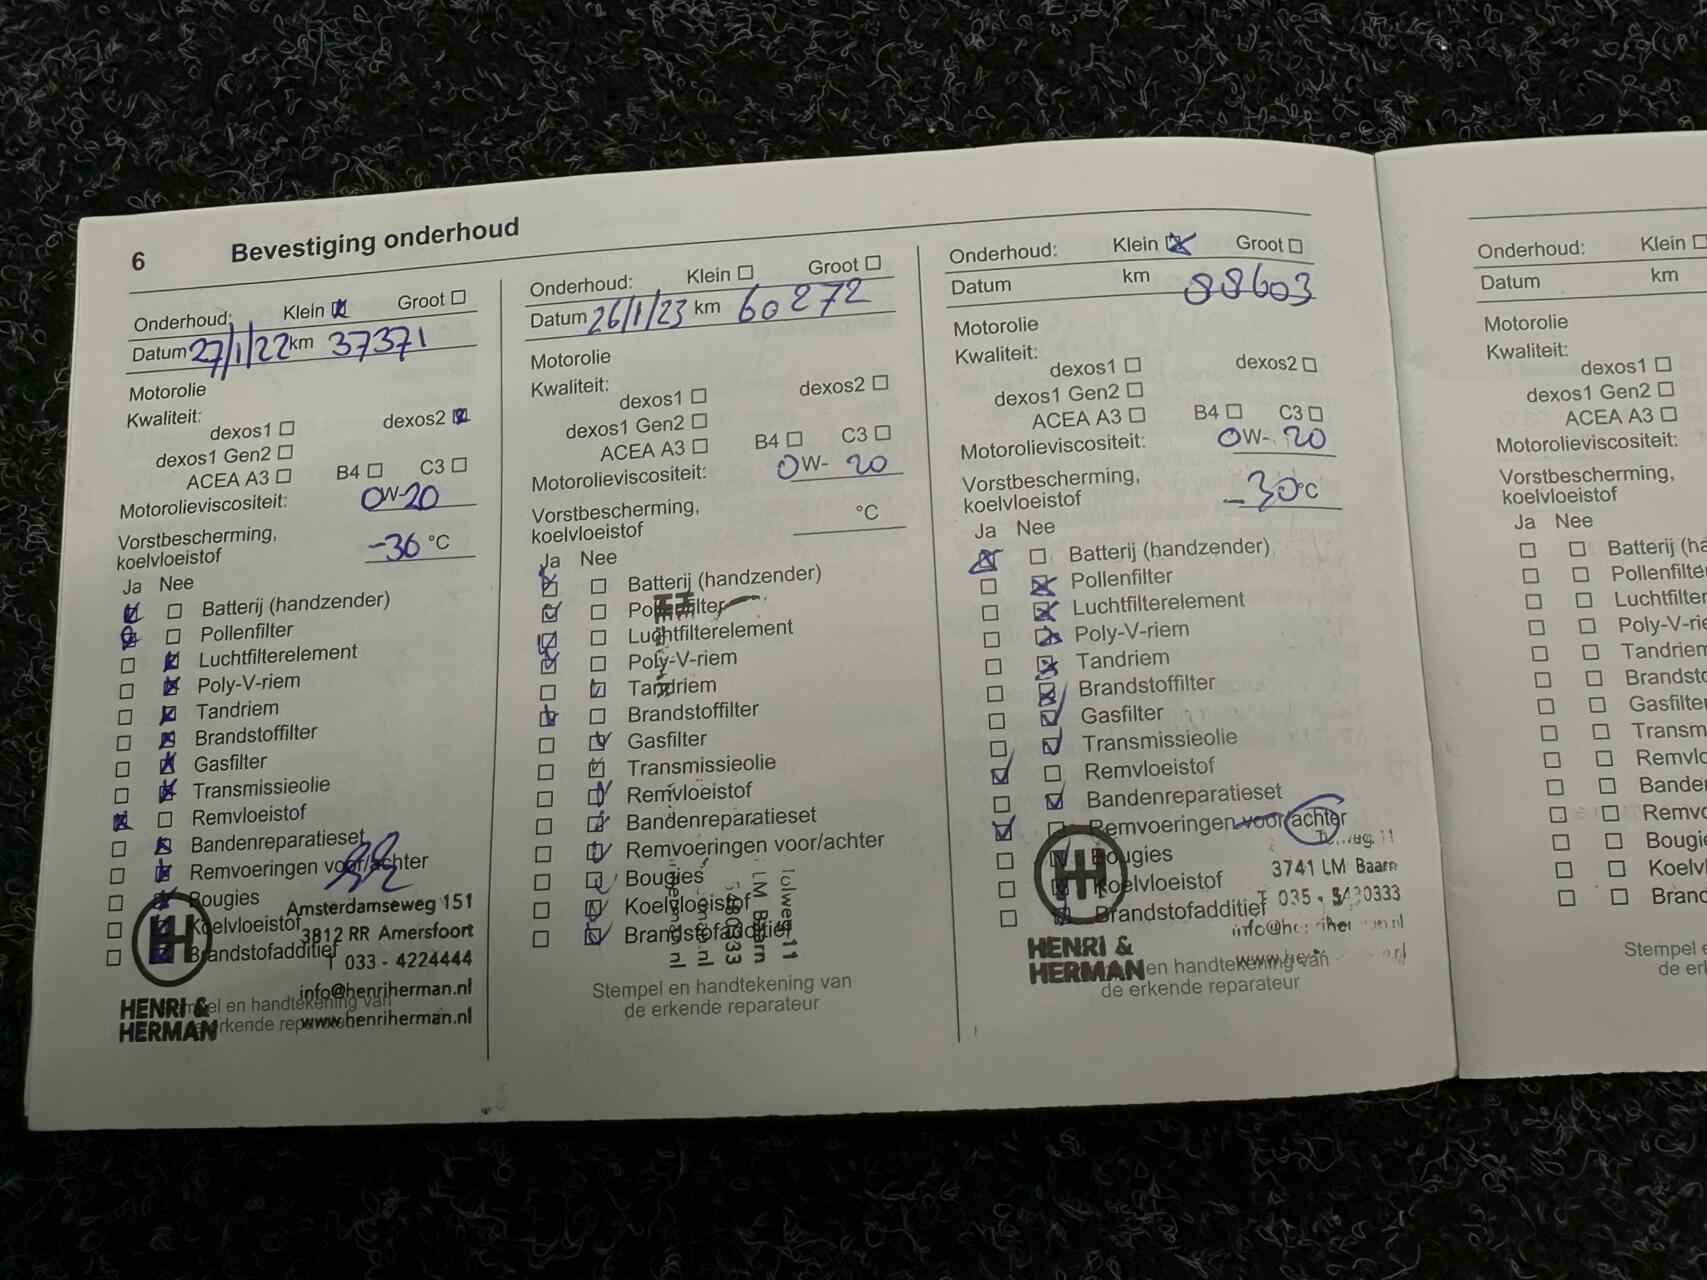 6 Bevestiging onderhoud
Onderhoud: Klein Groot
Datum 27/1/22 km 37371
Motorolie
Kwaliteit:
dexos1 dexos2
dexos1 Gen2
ACEA A3 B4 C3
Motorolieviscositeit: 0W-20
Vorstbescherming,
koelvloeistof -36 °C
Ja Nee
Batterij (handzender)
Pollenfilter
Luchtfilterelement
Poly-V-riem
Tandriem
Brandstoffilter
Gasfilter
Transmissieolie
Remvloeistof
Bandenreparatieset
Remvoeringen voor/achter
Bougies
Koelvloeistof
Brandstofadditief
Amsterdamseweg 151
3812 RR Amersfoort
T 033 - 4224444
info@henriherman.nl
www.henriherman.nl
HENRI &
HERMAN
Onderhoud: Klein Groot
Datum 26/1/23 km 60272
Motorolie
Kwaliteit:
dexos1 dexos2
dexos1 Gen2
ACEA A3 B4 C3
Motorolieviscositeit: 0W-20
Vorstbescherming,
koelvloeistof °C
Ja Nee
Batterij (handzender)
Pollenfilter
Luchtfilterelement
Poly-V-riem
Tandriem
Brandstoffilter
Gasfilter
Transmissieolie
Remvloeistof
Bandenreparatieset
Remvoeringen voor/achter
Bougies
Koelvloeistof
Brandstofadditief
Stempel en handtekening van
de erkende reparateur
Onderhoud: Klein Groot
Datum km 88603
Motorolie
Kwaliteit:
dexos1 dexos2
dexos1 Gen2
ACEA A3 B4 C3
Motorolieviscositeit: 0W-20
Vorstbescherming,
koelvloeistof -30 °C
Ja Nee
Batterij (handzender)
Pollenfilter
Luchtfilterelement
Poly-V-riem
Tandriem
Brandstoffilter
Gasfilter
Transmissieolie
Remvloeistof
Bandenreparatieset
Remvoeringen voor/achter
Bougies
Koelvloeistof
Brandstofadditief
3741 LM Baarn
HENRI &
HERMAN
en handtekening van
de erkende reparateur
Onderhoud: Klein
Datum km
Motorolie
Kwaliteit:
dexos1
dexos1 Gen2
ACEA A3
Motorolieviscositeit:
Vorstbescherming,
koelvloeistof
Ja Nee
Batterij (ha
Pollenfilte
Luchtfilter
Poly-V-rie
Tandriem
Brandsto
Gasfilter
Transm
Remvlo
Banden
Remvo
Bougie
Koelvl
Branc
Stempel e
de er